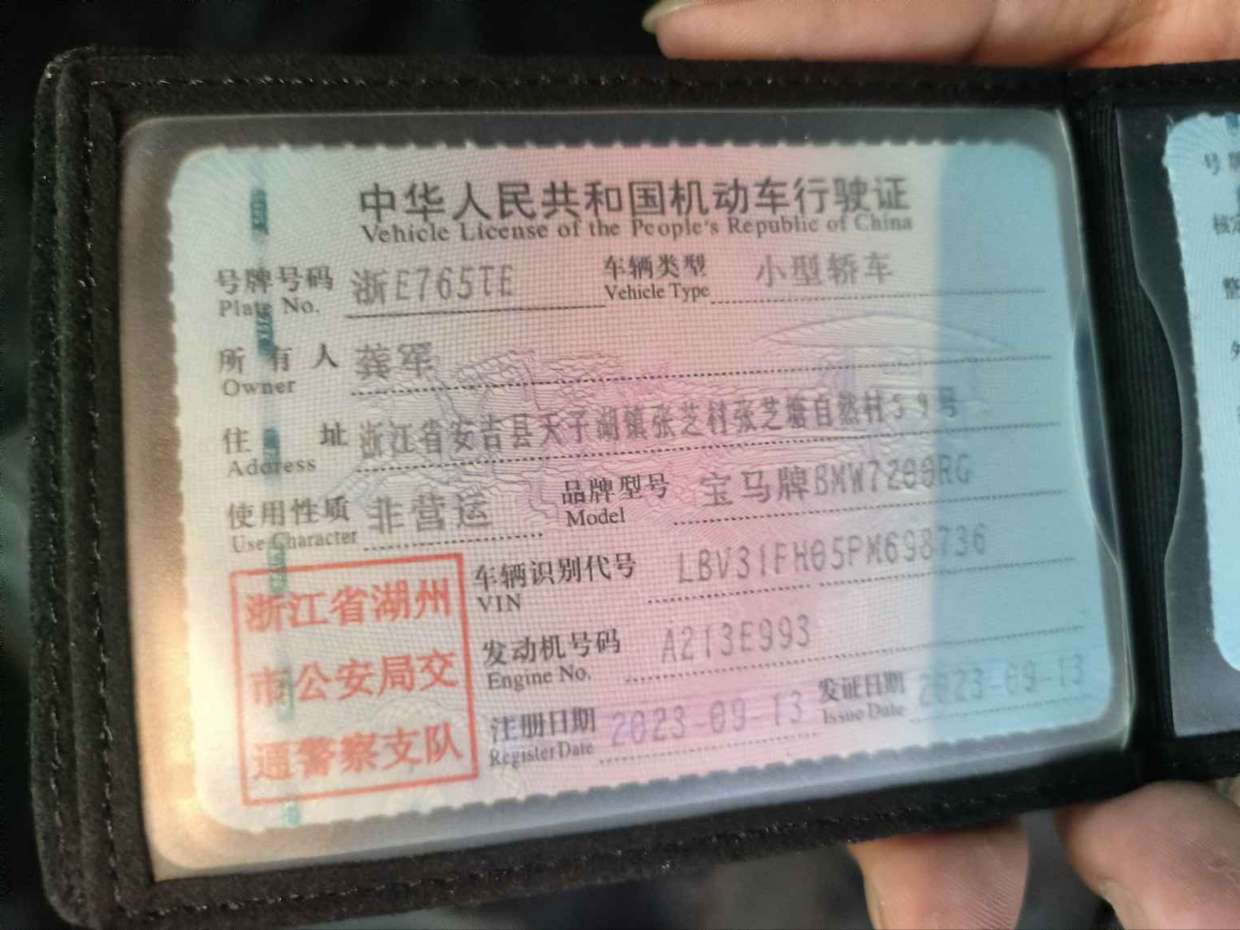 中华人民共和国机动车行驶证
Vehicle License of the People's Republic of China
号牌号码 浙E765TE 车辆类型 小型轿车
Plate No. Vehicle Type
所有人 龚军
Owner
住址 浙江省安吉县天子湖镇张芝村张芝塘自然村59号
Address
使用性质 非营运 品牌型号 宝马牌BMW7200RG
Use Character Model
车辆识别代号 LBV31FH05PM698736
VIN
发动机号码 A213E993
Engine No.
注册日期 2023-09-13 发证日期 2023-09-13
Register Date Issue Date
浙江省湖州
市公安局交
通警察支队
号牌
核定
整